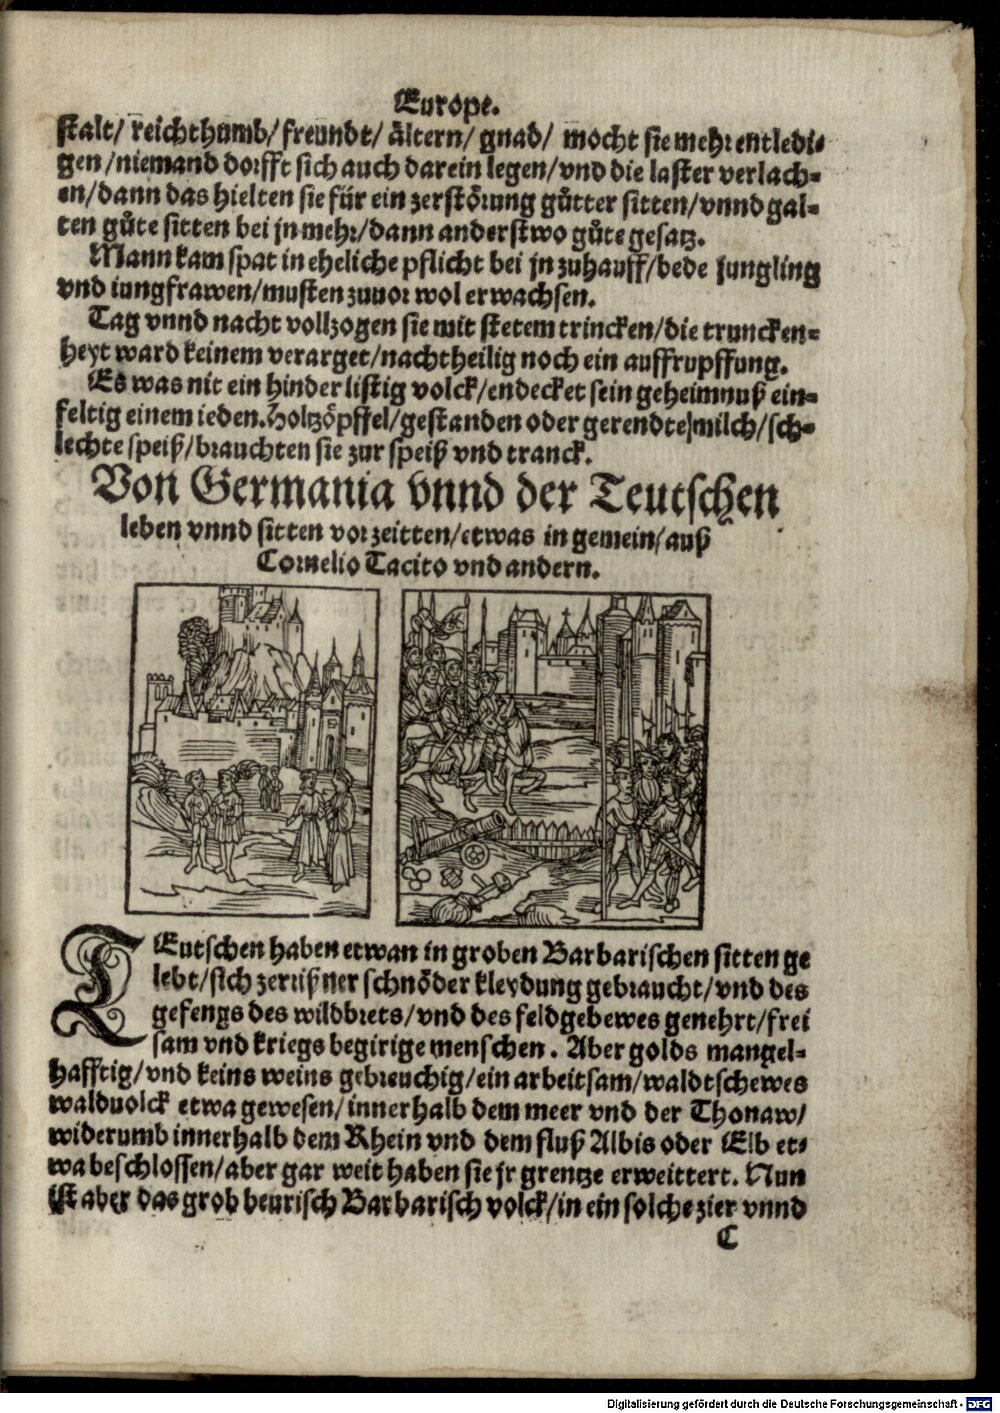 Europe.
stalt/ reichthumb/ freundt/ ältern/ gnad/ mocht sie mehr entledi-
gen/niemand dorfft sich auch darein legen/vnd die laster verlach-
en/dann das hielten sie für ein zerstörung gůtter sitten/vnnd gal-
ten gůte sitten bei jn mehr/dann anderstwo gůte gesatz.
Mann kam spat in eheliche pflicht bei jn zuhauff/bede jungling
vnd iungfrawen/musten zuuor wol erwachsen.
Tag vnnd nacht vollzogen sie mit stetem trincken/die truncken-
heyt ward keinem verarget/nachtheilig noch ein auffrupffung.
Es was nit ein hinderlistig volck/endecket sein geheimnuß ein-
feltig einem ieden. Holtzöpffel/gestanden oder gerendte milch/sch-
lechte speiß/brauchten sie zur speiß vnd tranck.
Von Germania vnnd der Teutschen
leben vnnd sitten vor zeitten/etwas in gemein/auß
Cornelio Tacito vnd andern.
TEutschen haben etwan in groben Barbarischen sitten ge
lebt/sich zerrißner schnöder kleydung gebraucht/vnd des
gefengs des wildbrets/vnd des feldgebewes genehrt/frei
sam vnd kriegs begirige menschen. Aber golds mangel-
hafftig/vnd keins weins gebreuchig/ein arbeitsam/waldtschewes
walduolck etwa gewesen/innerhalb dem meer vnd der Thonaw/
widerumb innerhalb dem Rhein vnd dem fluß Albis oder Elb et-
wa beschlossen/aber gar weit haben sie jr grentze erweittert. Nun
ist aber das grob beurisch Barbarisch volck/in ein solche zier vnnd
C
Digitalisierung gefördert durch die Deutsche Forschungsgemeinschaft - DFG